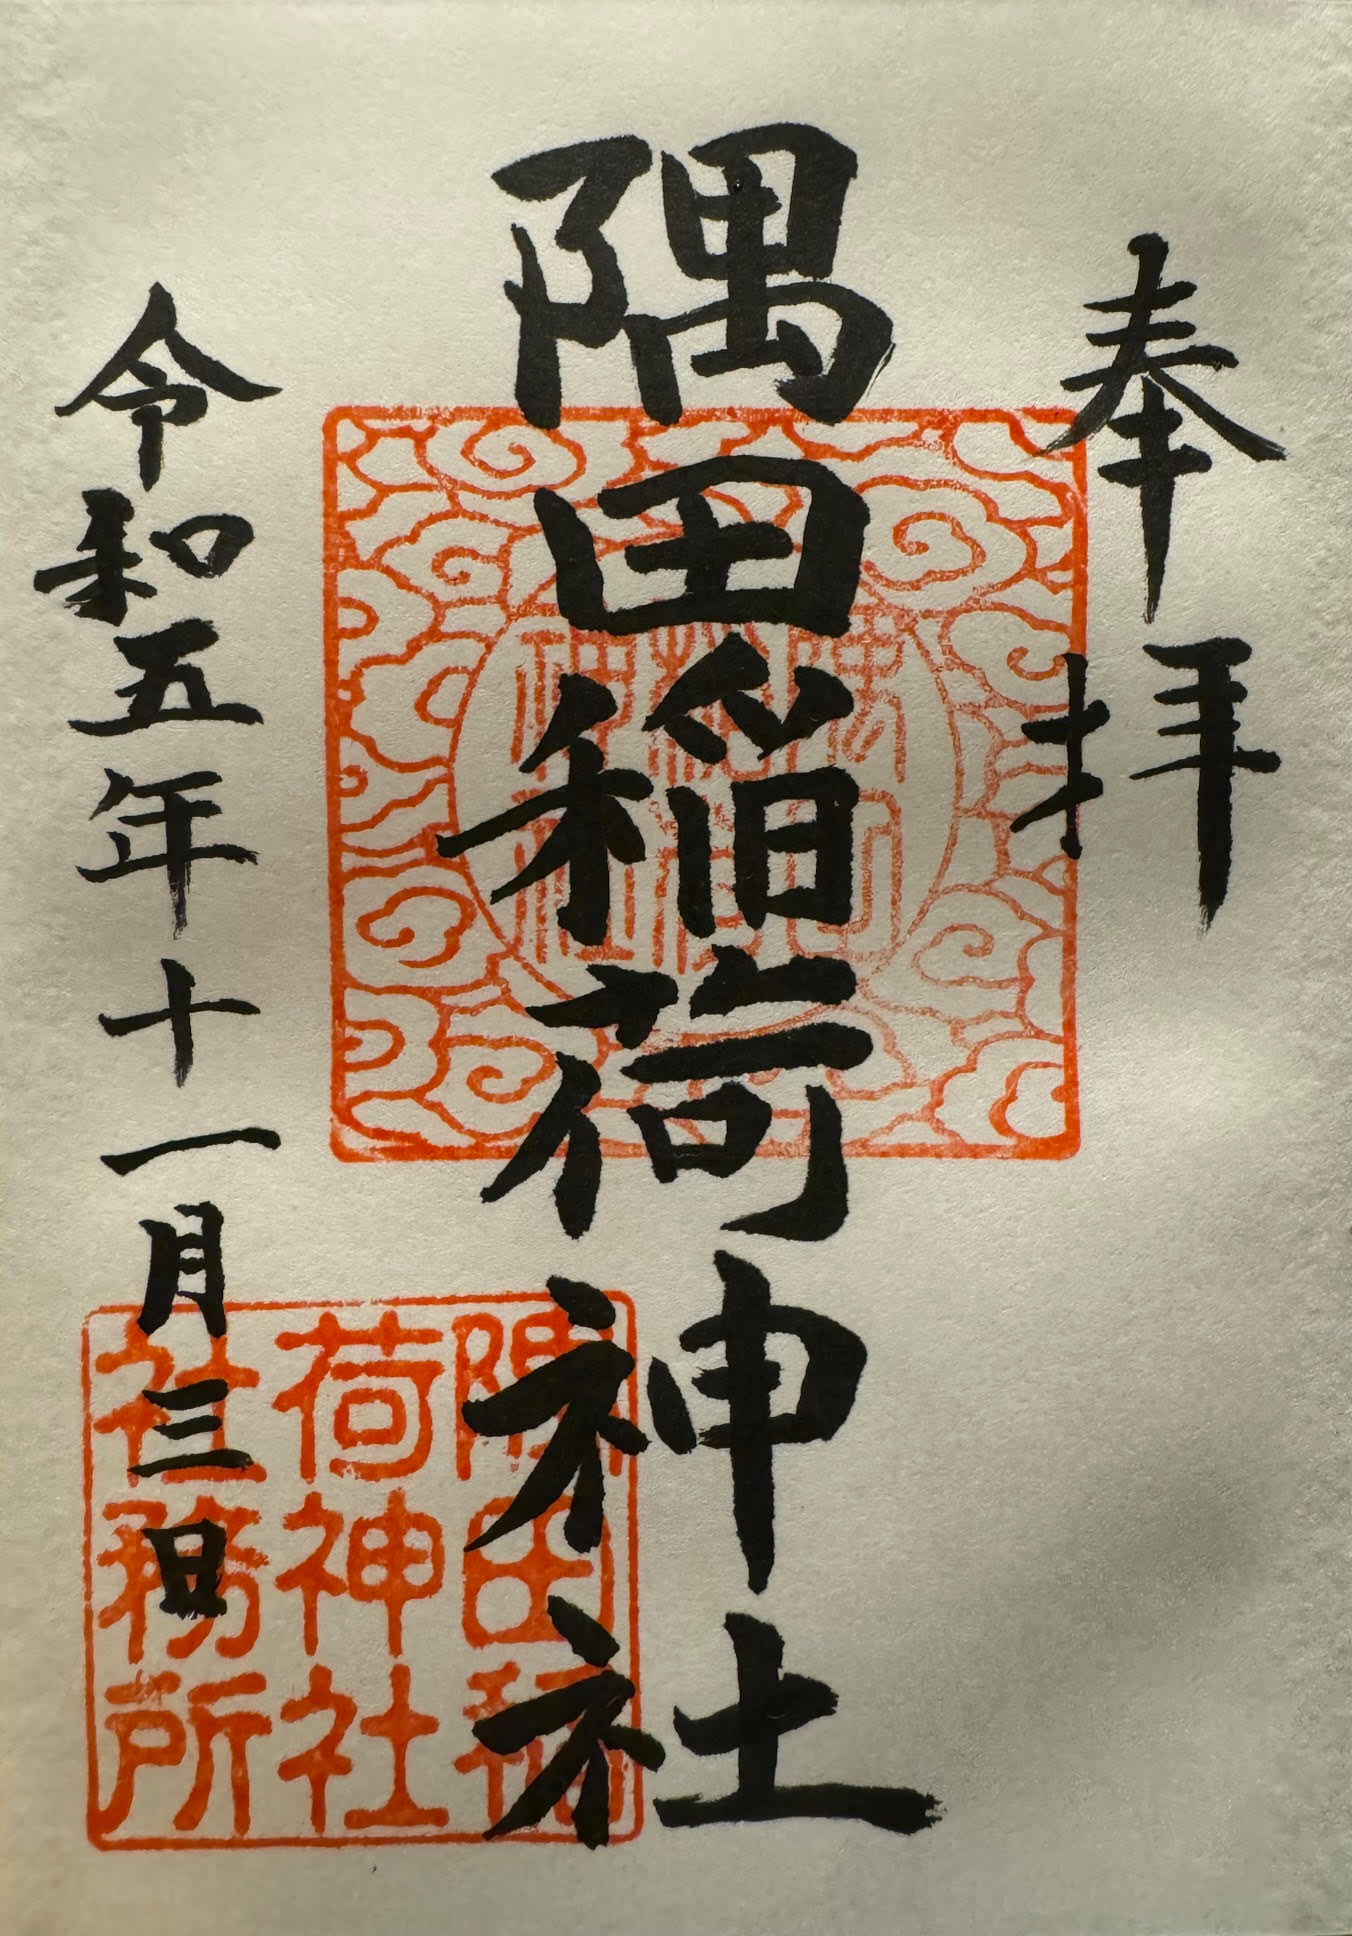 奉拝
隅田稲荷神社
令和五年十一月三日
隅田稲
荷神社
隅田稲
荷神社
社務所